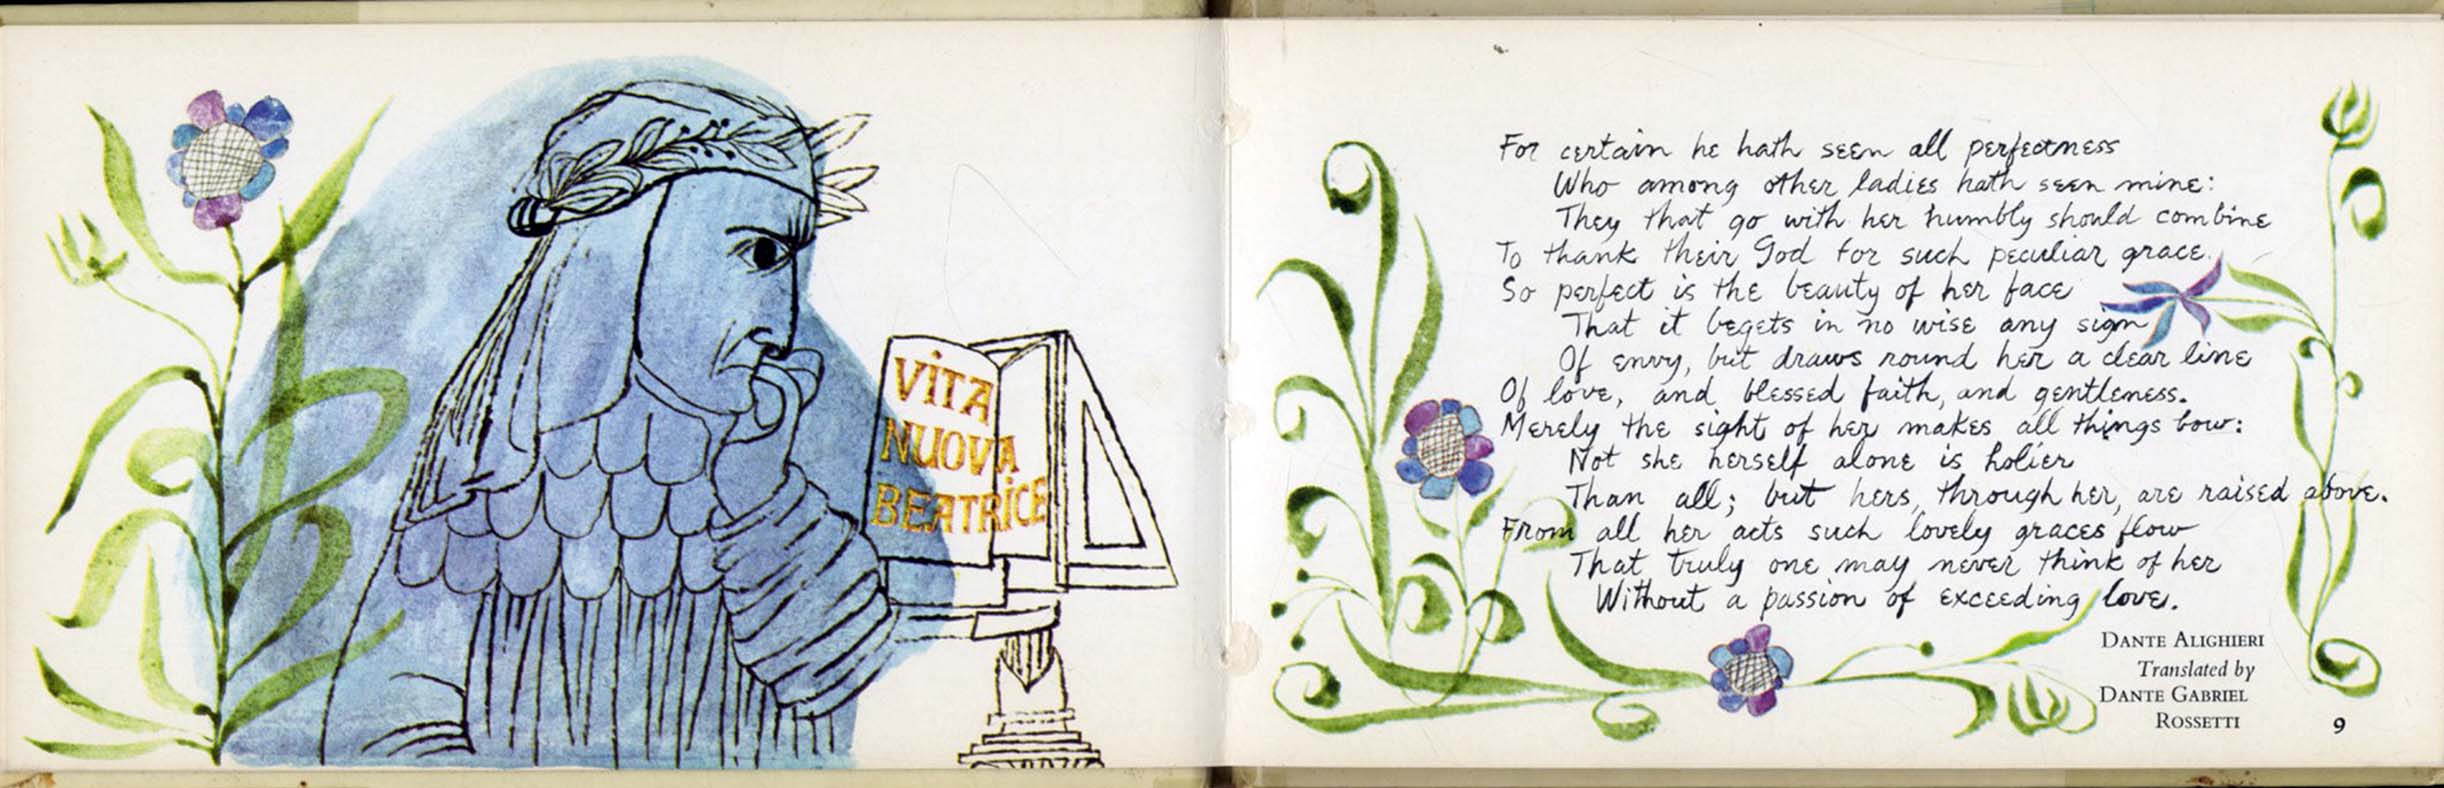 VITA
NUOVA
BEATRICE
For certain he hath seen all perfectness
Who among other ladies hath seen mine:
They that go with her humbly should combine
To thank their God for such peculiar grace.
So perfect is the beauty of her face
That it begets in no wise any sign
Of envy, but draws round her a clear line
Of love, and blessed faith, and gentleness.
Merely the sight of her makes all things bow:
Not she herself alone is holier
Than all; but hers, through her, are raised above.
From all her acts such lovely graces flow
That truly one may never think of her
Without a passion of exceeding love.
DANTE ALIGHIERI
Translated by
DANTE GABRIEL
ROSSETTI
9